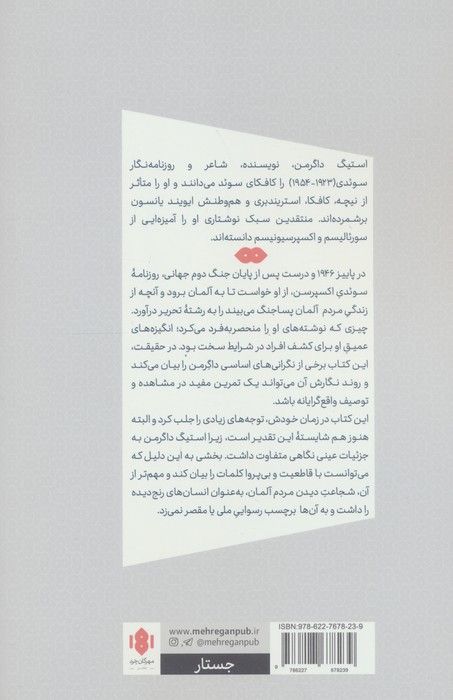 استیگ داگرمن، نویسنده، شاعر و روزنامه‌نگار
سوئدی(۱۹۲۳-۱۹۵۴) را کافکای سوئد می‌دانند و او را متأثر
از نیچه، کافکا، استریندبری و هم‌وطنش ایویند یانسون
برشمرده‌اند. منتقدین سبک نوشتاری او را آمیزه‌ایی از
سورئالیسم و اکسپرسیونیسم دانسته‌اند.
در پاییز ۱۹۴۶ و درست پس از پایان جنگ دوم جهانی، روزنامهٔ
سوئدیِ اکسپرسن، از او خواست تا به آلمان برود و آنچه از
زندگیِ مردم آلمان پساجنگ می‌بیند را به رشتهٔ تحریر درآورد.
چیزی که نوشته‌های او را منحصربه‌فرد می‌کرد؛ انگیزه‌های
عمیق او برای کشف افراد در شرایط سخت بود. در حقیقت،
این کتاب برخی از نگرانی‌های اساسی داگرمن را بیان می‌کند
و روند نگارش آن می‌تواند یک تمرین مفید در مشاهده و
توصیف واقع‌گرایانه باشد.
این کتاب در زمان خودش، توجه‌های زیادی را جلب کرد و البته
هنوز هم شایستهٔ این تقدیر است، زیرا استیگ داگرمن به
جزئیات عینی نگاهی متفاوت داشت. بخشی به این دلیل که
می‌توانست با قاطعیت و بی‌پروا کلمات را بیان کند و مهم‌تر از
آن، شجاعتِ دیدن مردم آلمان، به‌عنوان انسان‌های رنج‌دیده
را داشت و به آن‌ها برچسب رسوایی ملی یا مقصر نمی‌زد.
مهرگان خرد
www.mehreganpub.ir
@mehreganpub
جستار
ISBN:978-622-7678-23-9
9 786227 678239